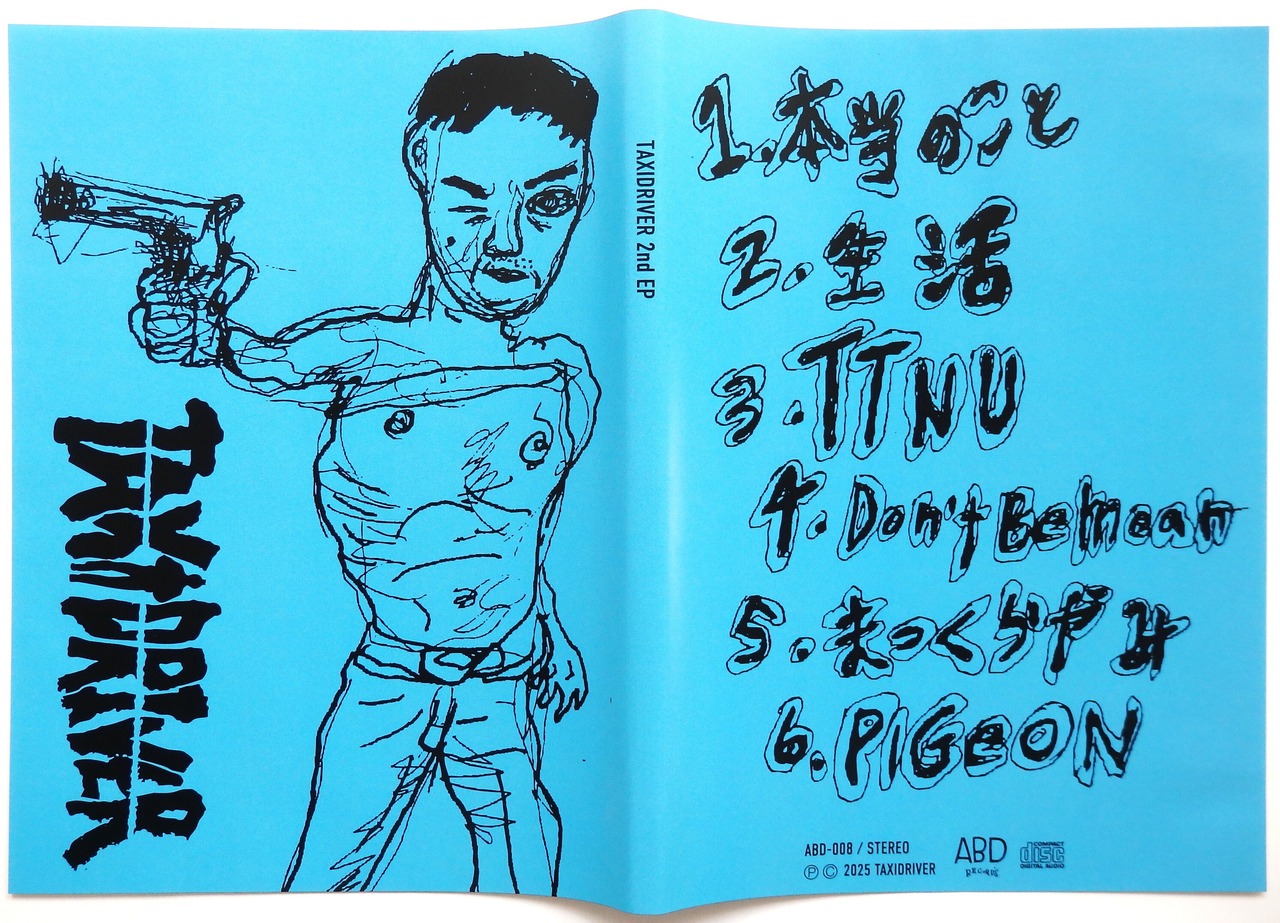 TAXIDRIVER
TAXIDRIVER 2nd EP
1.本当のこと
2.生活
3.TTNU
4.Don't Be mean
5.まっくらやみ
6.PIGeON
ABD-008 / STEREO
Ⓟ © 2025 TAXIDRIVER
ABD
RECORDS
COMPACT
disc
DIGITAL AUDIO